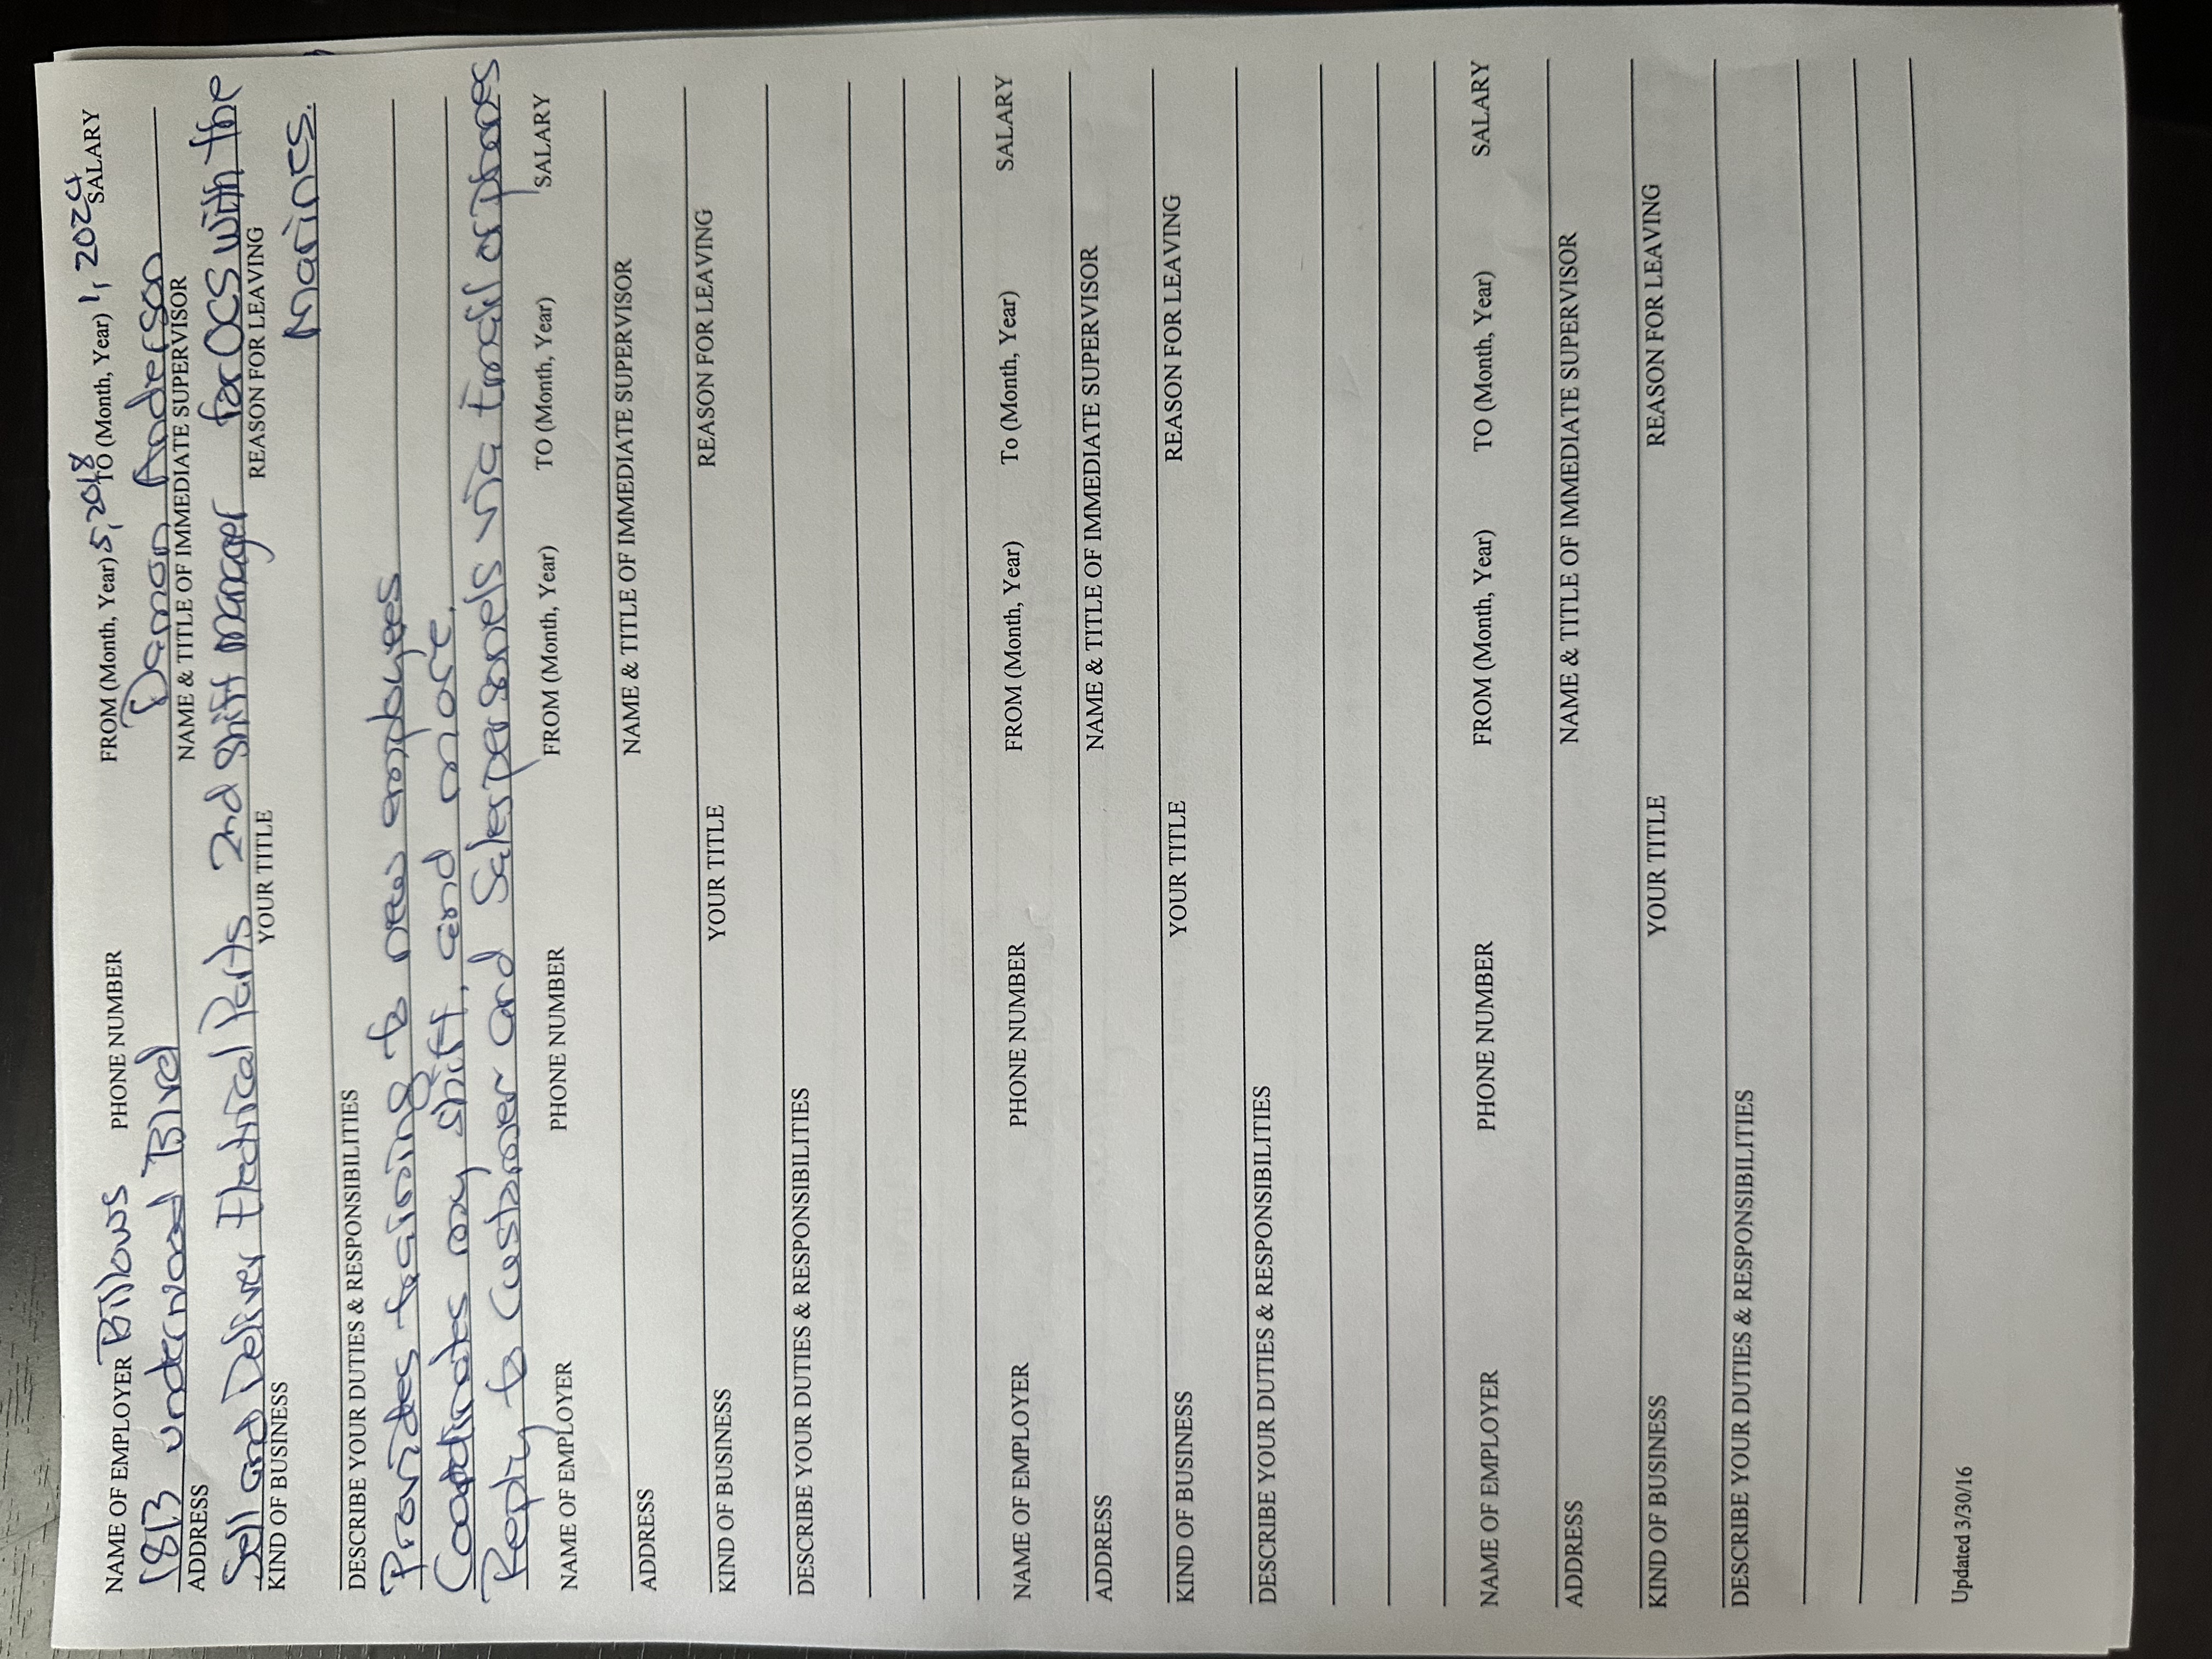 NAME OF EMPLOYER Billows PHONE NUMBER FROM (Month, Year) 5, 2018 TO (Month, Year) 1, 2024 SALARY
1813 underwood Blvd Damon Anderson
ADDRESS NAME & TITLE OF IMMEDIATE SUPERVISOR
Sell and Deliver Electrical Parts 2nd Shift Manager for OCS with the
KIND OF BUSINESS YOUR TITLE REASON FOR LEAVING
Marines.
DESCRIBE YOUR DUTIES & RESPONSIBILITIES
Provides training to new employees
Coordinates my shift, and more.
Reply to Customer and Salespersonels via Email or phones
NAME OF EMPLOYER PHONE NUMBER FROM (Month, Year) TO (Month, Year) SALARY
ADDRESS NAME & TITLE OF IMMEDIATE SUPERVISOR
KIND OF BUSINESS YOUR TITLE REASON FOR LEAVING
DESCRIBE YOUR DUTIES & RESPONSIBILITIES
NAME OF EMPLOYER PHONE NUMBER FROM (Month, Year) To (Month, Year) SALARY
ADDRESS NAME & TITLE OF IMMEDIATE SUPERVISOR
KIND OF BUSINESS YOUR TITLE REASON FOR LEAVING
DESCRIBE YOUR DUTIES & RESPONSIBILITIES
NAME OF EMPLOYER PHONE NUMBER FROM (Month, Year) TO (Month, Year) SALARY
ADDRESS NAME & TITLE OF IMMEDIATE SUPERVISOR
KIND OF BUSINESS YOUR TITLE REASON FOR LEAVING
DESCRIBE YOUR DUTIES & RESPONSIBILITIES
Updated 3/30/16